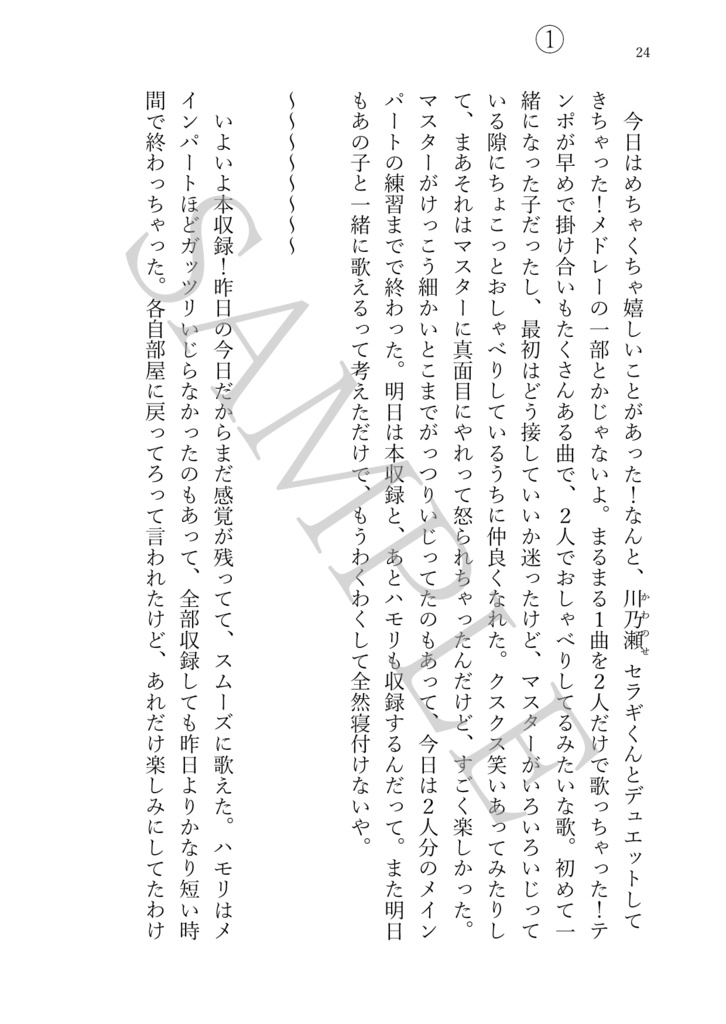 24
①
今日はめちゃくちゃ嬉しいことがあった！なんと、川乃瀬セラギくんとデュエットして
かわのせ
きちゃった！メドレーの一部とかじゃないよ。まるまる１曲を２人だけで歌っちゃった！テ
ンポが早めで掛け合いもたくさんある曲で、２人でおしゃべりしてるみたいな歌。初めて一
緒になった子だったし、最初はどう接していいか迷ったけど、マスターがいろいろいじって
いる隙にちょこっとおしゃべりしているうちに仲良くなれた。クスクス笑いあってみたりし
て、まあそれはマスターに真面目にやれって怒られちゃったんだけど、すごく楽しかった。
マスターがけっこう細かいとこまでがっつりいじってたのもあって、今日は２人分のメイン
パートの練習までで終わった。明日は本収録と、あとハモリも収録するんだって。また明日
もあの子と一緒に歌えるって考えただけで、もうわくわくして全然寝付けないや。
～～～～～～～～
いよいよ本収録！昨日の今日だからまだ感覚が残ってて、スムーズに歌えた。ハモリはメ
インパートほどガッツリいじらなかったのもあって、全部収録しても昨日よりかなり短い時
間で終わっちゃった。各自部屋に戻ってろって言われたけど、あれだけ楽しみにしてたわけ
SAMPLE